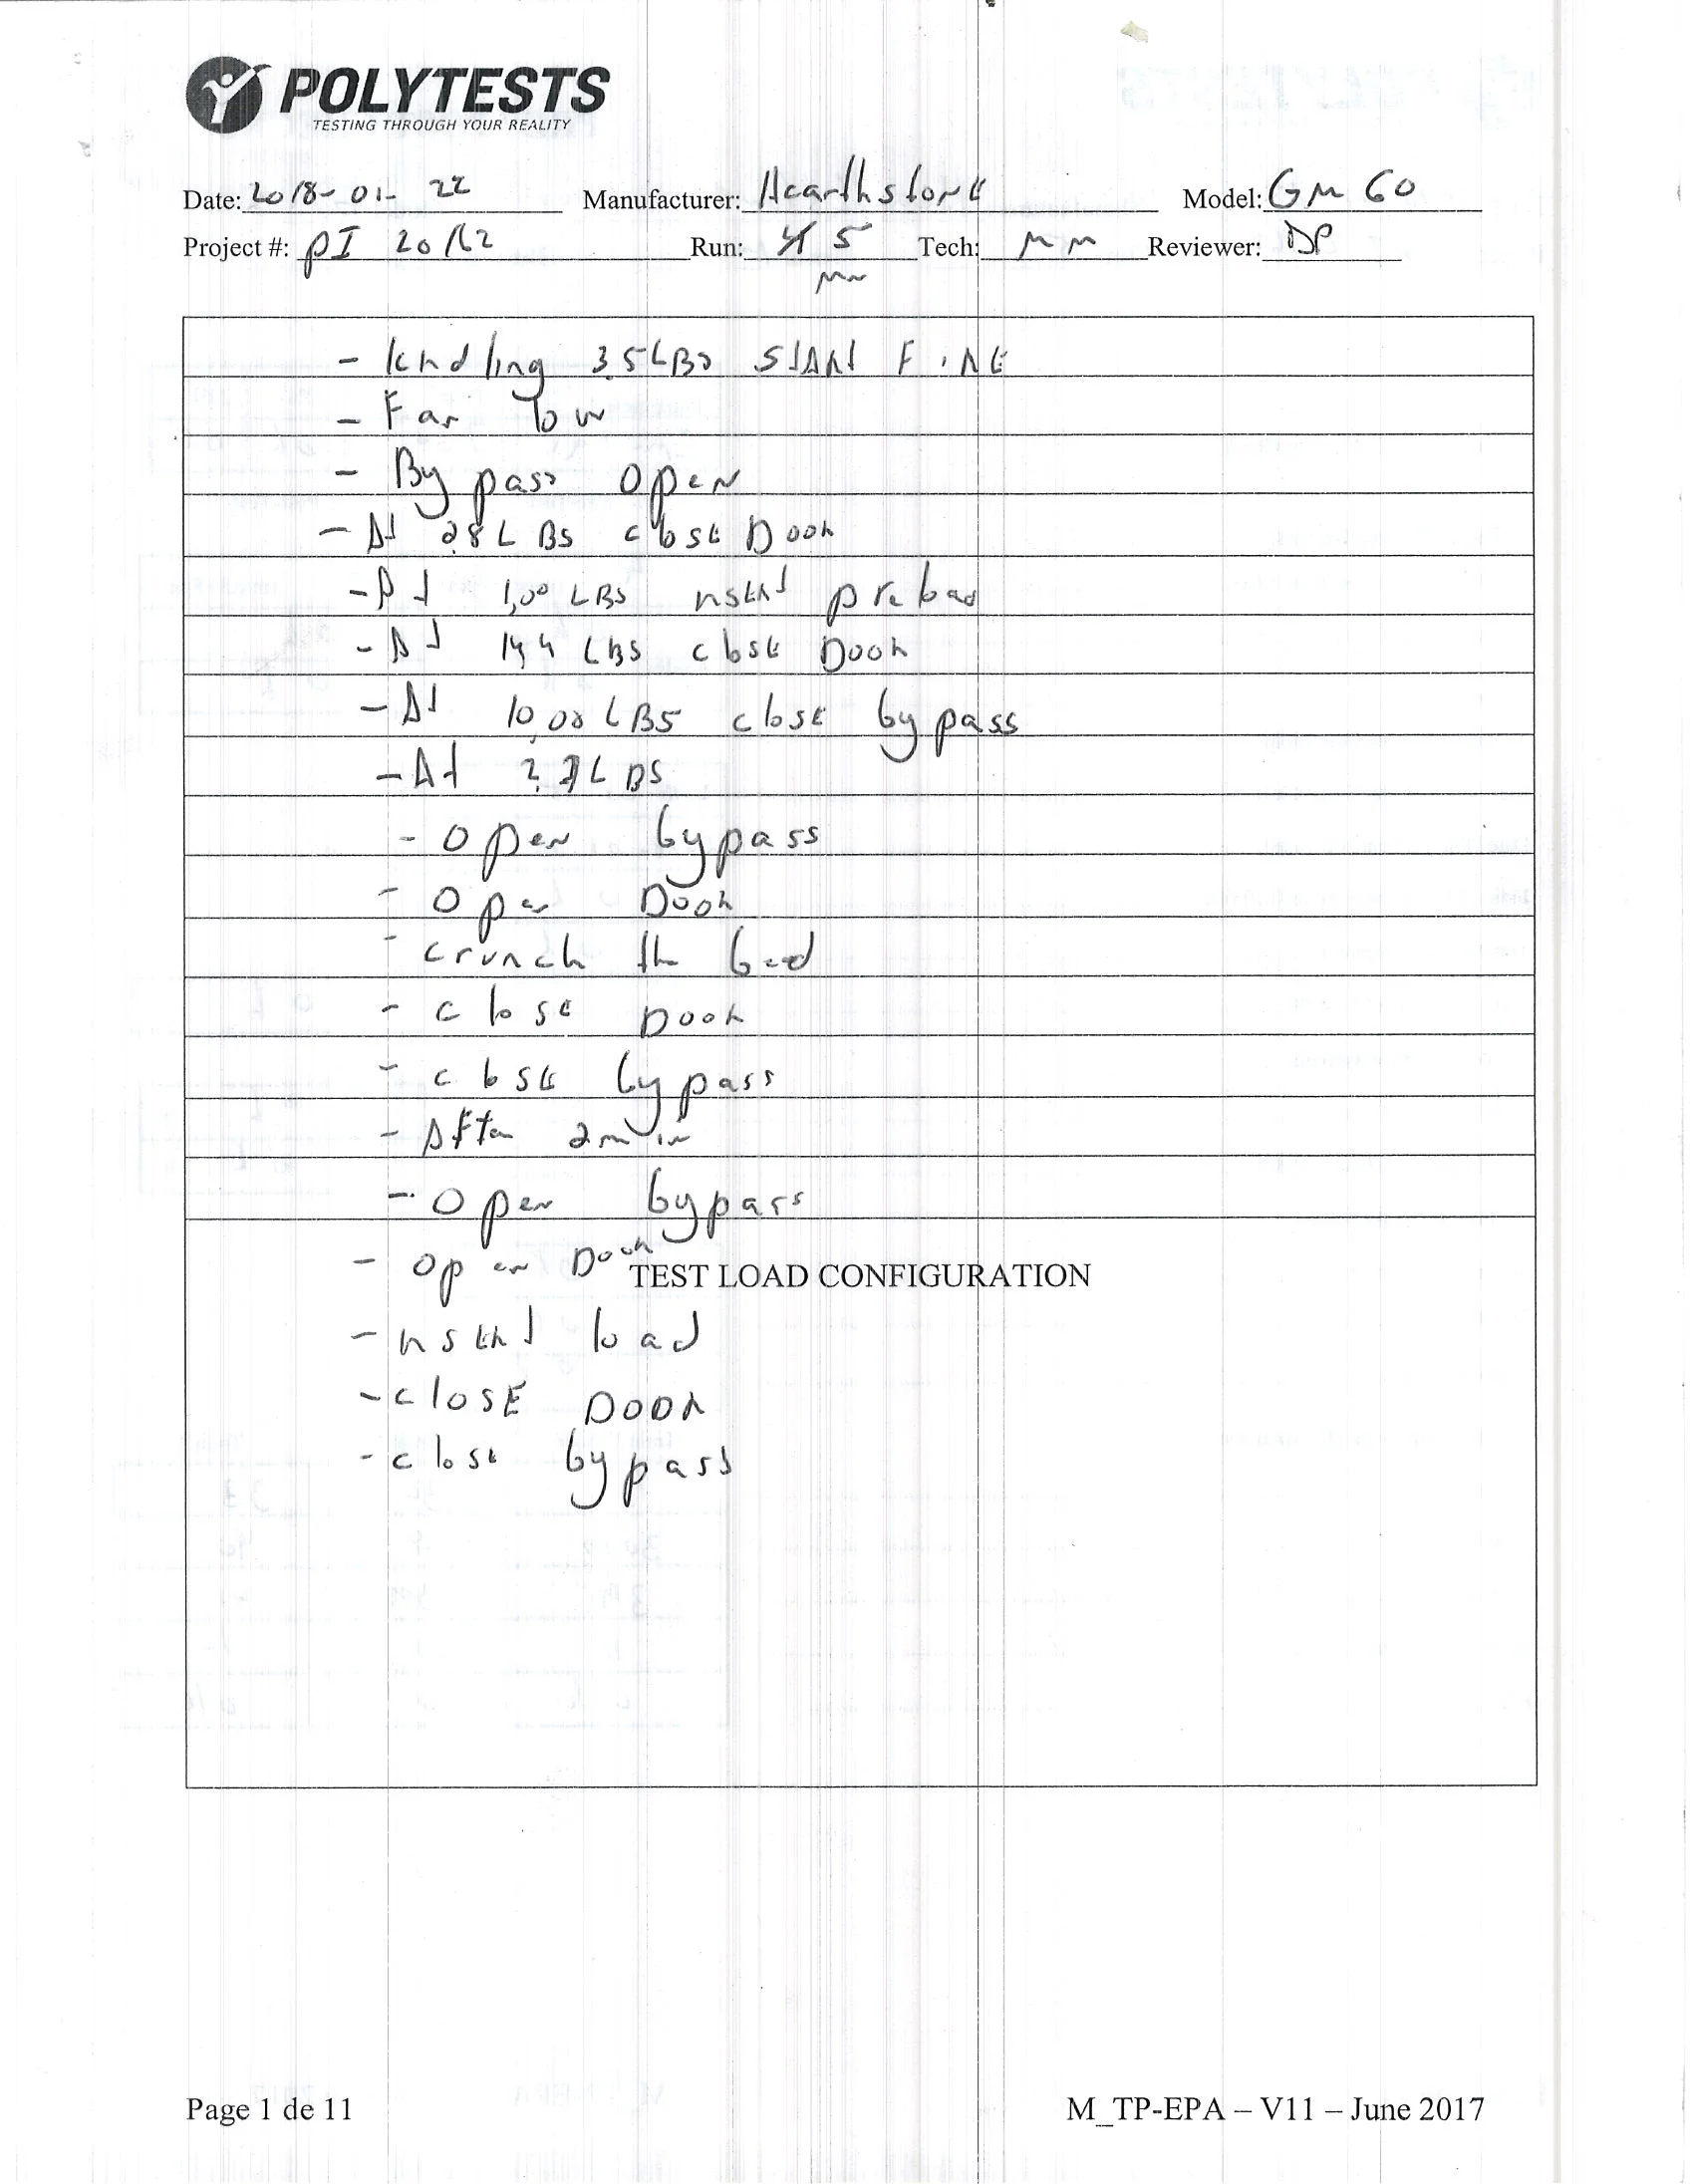 POLYTESTS
TESTING THROUGH YOUR REALITY
Date: 2018-01-22 Manufacturer: Hearthstone Model: GM 60
Project #: PI 20162 Run: 5 Tech: MM Reviewer: DP
MM
- kindling 3.5 LBS START FIRE
- Fan low
- By pass open
- At 2.8 LBS close Door
- At 1,00 LBS insert preload
- At 14,4 LBS close Door
- At 10,00 LBS close bypass
- At LBS
- open bypass
- open Door
- crunch the bed
- close Door
- close bypass
- After 2 min
- open bypass
- open Door
TEST LOAD CONFIGURATION
- insert load
- closE DOOR
- close bypass
Page 1 de 11 M_TP-EPA – V11 – June 2017